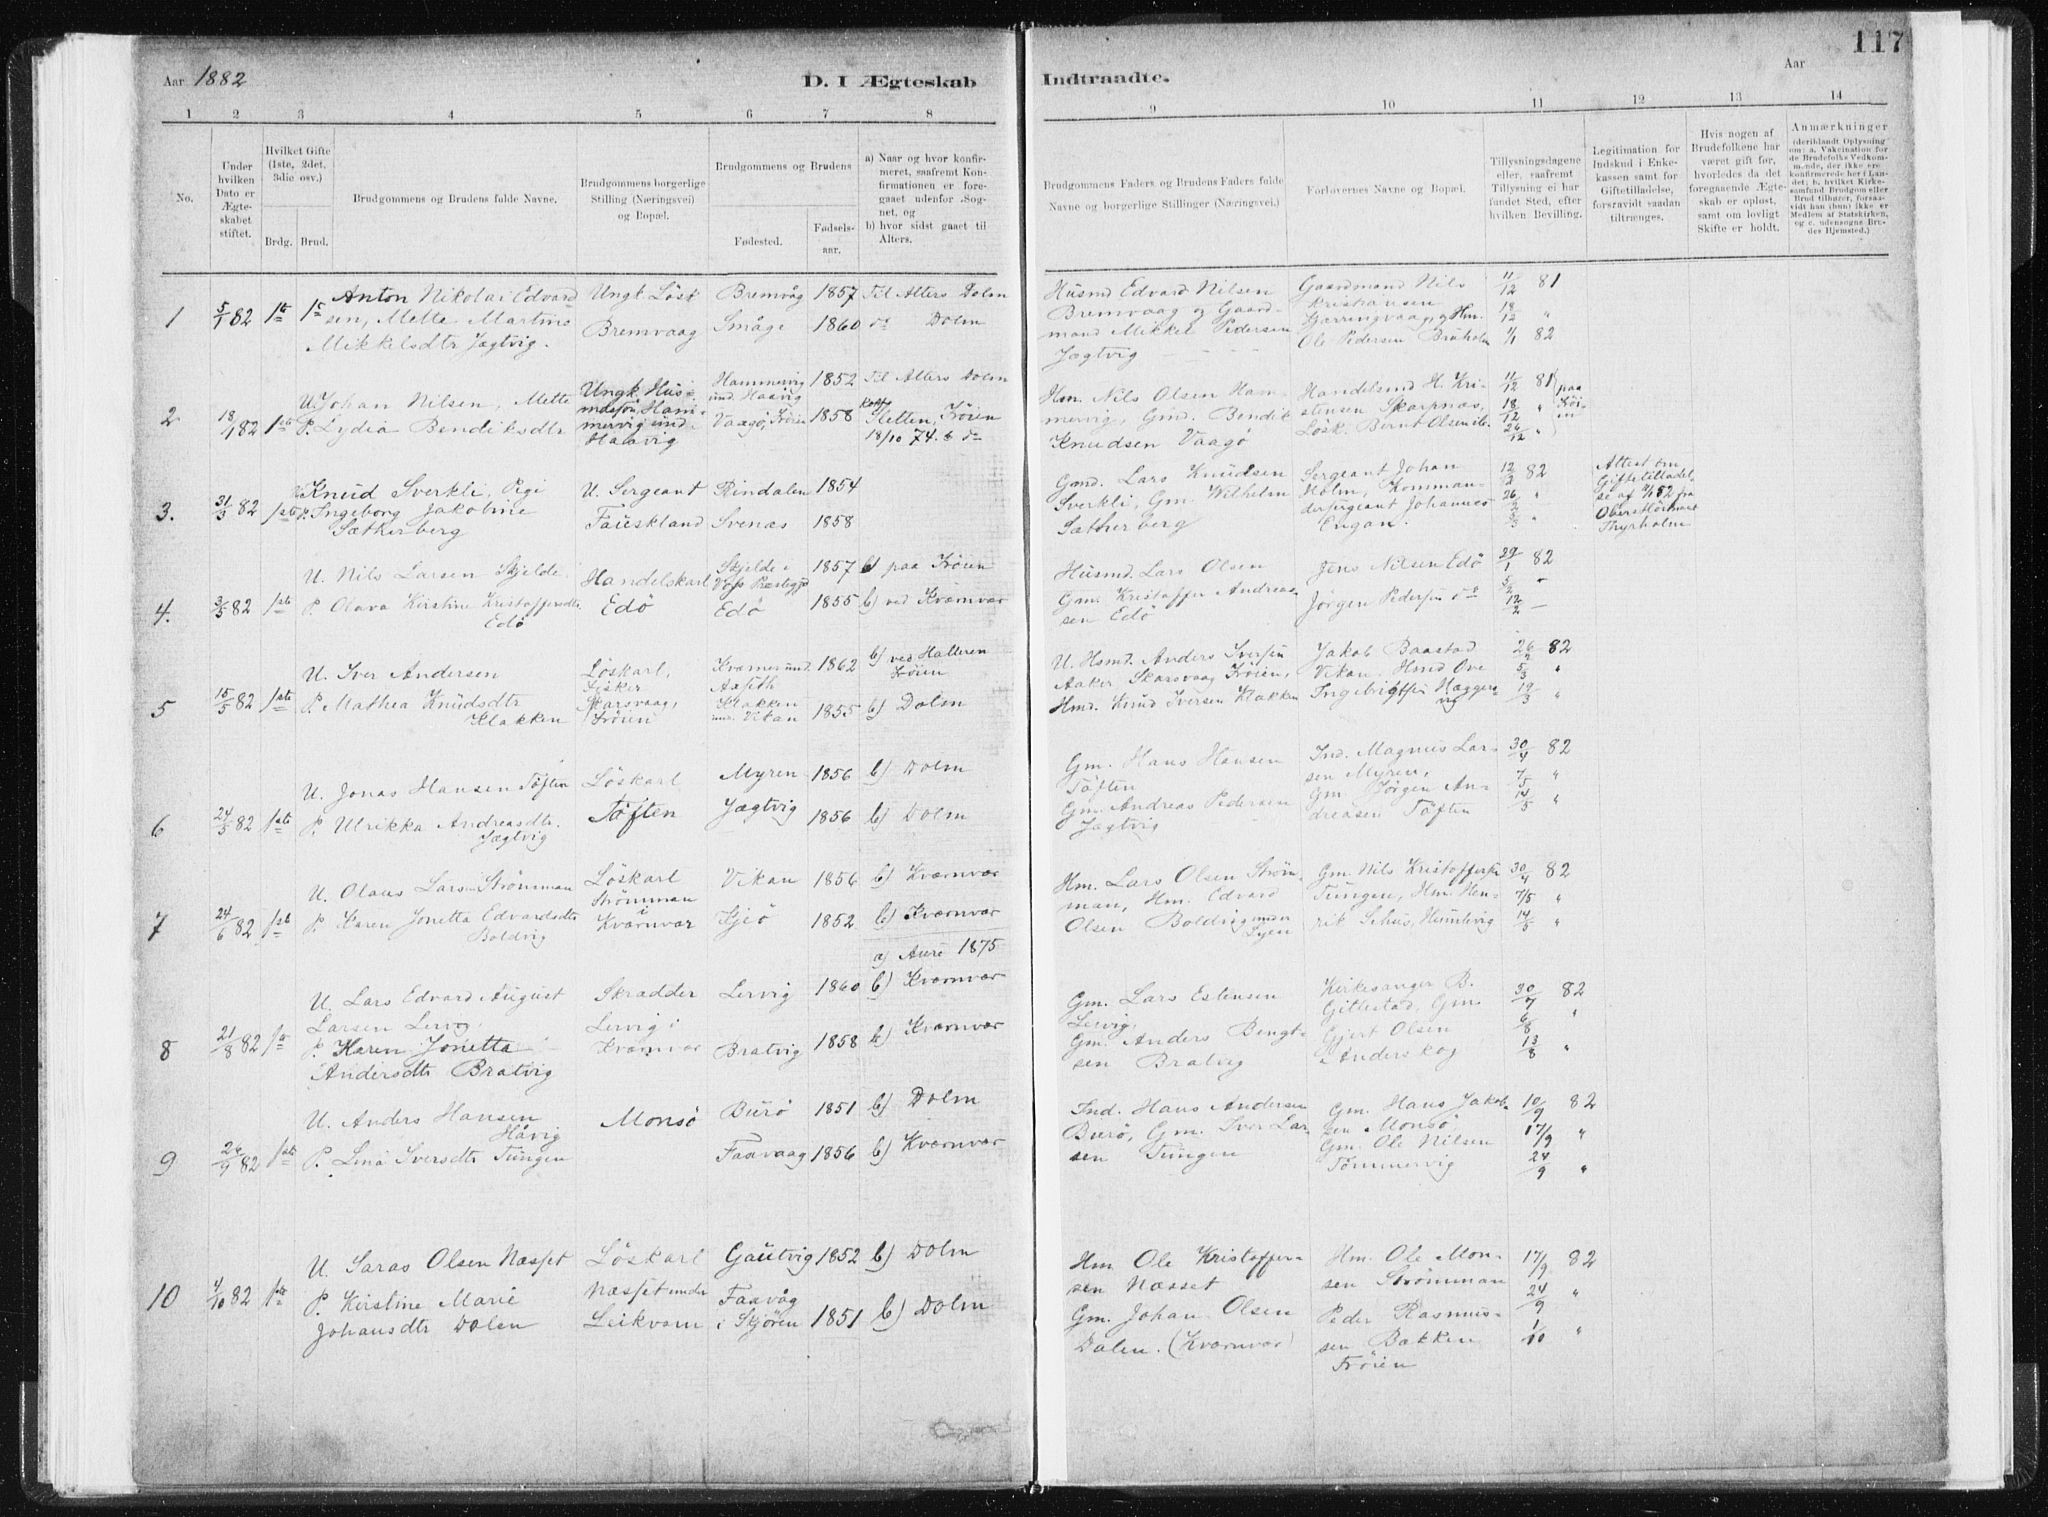 117
Aar 1882
D. I Ægteskab
Indtraadte.
Aar
1 2 3 4 5 6 7 8
9 10 11 12 13 14
No.
Under hvilken Dato er Ægteskabet stiftet.
Hvilket Gifte (1ste, 2det, 3die osv.)
Brdg. Brud.
Brudgommens og Brudens fulde Navne.
Brudgommens borgerlige Stilling (Næringsvei) og Bopæl.
Brudgommens og Brudens
Fødested. Fødselsaar.
a) Naar og hvor konfirmeret, saafremt Konfirmationen er foregaaet udenfor Sognet, og
b) hvor sidst gaaet til Alters.
Brudgommens Faders og Brudens Faders fulde Navne og borgerlige Stillinger (Næringsvei.)
Forlovernes Navne og Bopæl.
Tillysningsdagene eller, saafremt Tillysning ei har fundet Sted, efter hvilken Bevilling.
Legitimation for Indskud i Enkekassen samt for Giftetilladelse, forsavidt saadan tiltrænges.
Hvis nogen af Brudefolkene har været gift før, hvorledes da det foregaaende Ægteskab er opløst, samt om lovligt Skifte er holdt.
Anmærkninger
1 5/1 82 1ste 1e
Anton Nikolai Edvard
sen, Mette Martine
Mikkelsdtr Jægtvig.
Ungk. Løsk
Bremvaag
Bremvåg 1857 Til Alters Dolm
Småge 1860 do Dolm
Husmd Edvard Nilsen
Bremvaag og Gaard-
mand Mikkel Pedersen
Jægtvig
Gaardmand Nils
Kristiansen
Kjerringvaag, og Hm.
Ole Pedersen Bruholm
11/12 81
18/12 "
1/1 82
2 18/1 82 1ste
U. Johan Nilsen, Mette
P. Lydia Bendiksdtr
Ungk. Hus-
mdssøn, Ham-
mervig und.
Haavig
Hammervig
und. Haavig 1852 Til Alters Dolm
Vaagø, Frøien 1858 Konf. Sletten, Frøien
18/10 74. b do
Hm. Nils Olsen Ham-
mervig, Gmd. Bendik
Knudsen Vaagø
Handelsmd H. Kri-
stensen Skarpnæs,
Løsk. Bernt Olsen
11/12 81
18/12 "
26/12 "
paa Frøien
3. 31/3 82 1ste
Knud Sverkli, Pigi
P. Ingeborg Jakobine
Sætherberg
U. Sergeant
Fauskland
Rindalen 1854
Svenæs 1858
Gmd. Lars Knudsen
Sverkli, Gm. Wilhelm
Sætherberg
Sergeant Johan
Holm, Komman-
dersergeant Johannes
Engan.
12/2 82
26/2 "
5/3 "
Attest om
Giftetilladel-
se af
Oberstløitnant
Thyrholm
4. 3/5 82 1ste
U. Nils Larsen Skjelde
P. Olava Kirstine Kristoffersdtr
Edø
Handelskarl
Edø
Skjelde i
Voss Præstegj. 1857 b) paa Frøien
Edø 1855 b) ved Kværnvær
Husmd. Lars Olsen
Gm. Kristoffer Andrea-
sen Edø
Jens Nilsen Edø
Jørgen Pedersen do
29/1 82
5/2 "
12/2 —
5 15/5 82 1ste
U. Iver Andersen
P. Mathea Knudsdtr
Klakken
Løskarl,
Fisker
Skarsvaag,
Frøien
Kværnes und.
Axseth 1862 b) ved Halteren
Frøien
Klakken
und. Vikan 1855 b) Dolm
U. Hsmd. Anders Iversen
Aaker Skarsvaag Frøien,
Hmd. Knud Iversen Klakken
Jakob Baastad
Vikan. Hmd Ove
Ingebrigtsen Hægger
vig
26/2 82
5/3 "
19/3 "
6 24/5 82 1ste
U. Jonas Hansen Tøften
P. Ulrikka Andreasdtr.
Jægtvig
Løskarl
Tøften
Myren 1856 b) Dolm
Jægtvig 1856 b) Dolm
Gm. Hans Hansen
Tøften
Gm. Andreas Pedersen
Jægtvig
Ind. Magnus Lar-
sen Myren,
Gm. Jørgen An-
dreasen Tøften
30/4 82
7/5 "
14/5 "
7 24/6 82 1ste
U. Olaus Larsen Strømman
P. Karen Jonetta Edvardsdtr
Boldvig
Løskarl
Strømman
i
Kværnvær
Vikan 1856 b) Kværnvær
Kjeø 1852 b) Kværnvær
Hm. Lars Olsen Strøm-
man, Hm. Edvard
Olsen Boldvig under
Lyen
Gm. Nils Kristoffersen
Tungen, Hm. Hen-
rik Sehus, Humlevig
30/4 82
7/5 "
14/5 "
8 21/8 82 1ste
U. Lars Edvard August
Larsen Lervig.
P. Karen Jonetta
Andersdtr Bratvig
Skrædder
Lervig i
Kværnvær
a) Aure 1875
Lervig 1860 b) Kværnvær
Bratvig 1858 b) Kværnvær
Gm. Lars Estensen
Lervig,
Gm. Anders Bengt-
sen Bratvig
Kirkesanger B.
Gittestad, Gm.
Gjert Olsen
Anderskog
30/7 82
6/8 "
13/8 "
9 26/9 82 1ste
U. Anders Hansen
Håvig
P. Lina Iversdtr Tungen
Monsø
Burø 1851 b) Dolm
Faxvaag 1856 b) Kværnvær
Ind. Hans Andersen
Burø, Gm. Iver Lar-
sen Tungen
Gm. Hans Jakob-
sen Monsø,
Gm. Ole Nilsen
Tømmervig
10/9 82
17/9 "
24/9 "
10 4/10 82 1ste
U. Saras Olsen Næsset
P. Kirstine Marie
Johansdtr Dolen
Løskarl
Næsset under
Leikvam
Gautvig 1852 b) Dolm
Faxvåg
i Skjøren 1851 b) Dolm
Hm Ole Kristoffer-
sen Næsset
Gm. Johan Olsen
Dalen. (Kværnvær)
Hm. Ole Mon-
sen Strømman
Peder Rasmus-
sen Bakken
Frøien
17/9 82
24/9 "
1/10 "